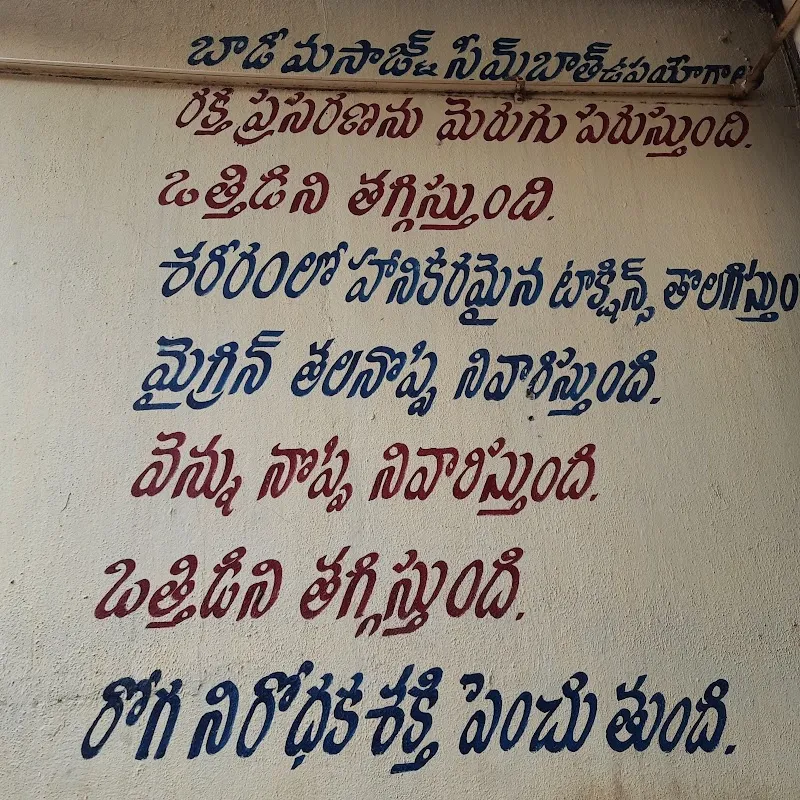 బాడీ మసాజ్ స్టీమ్‌బాత్ ఉపయోగాలు
రక్త ప్రసరణను మెరుగు పరుస్తుంది.
ఒత్తిడిని తగ్గిస్తుంది.
శరీరంలో హానికరమైన టాక్షిన్స్ తొలగిస్తుం
మైగ్రిన్ తలనొప్పి నివారిస్తుంది.
వెన్ను నొప్పి నివారిస్తుంది.
ఒత్తిడిని తగ్గిస్తుంది.
రోగ నిరోధక శక్తి పెంచు తుంది.